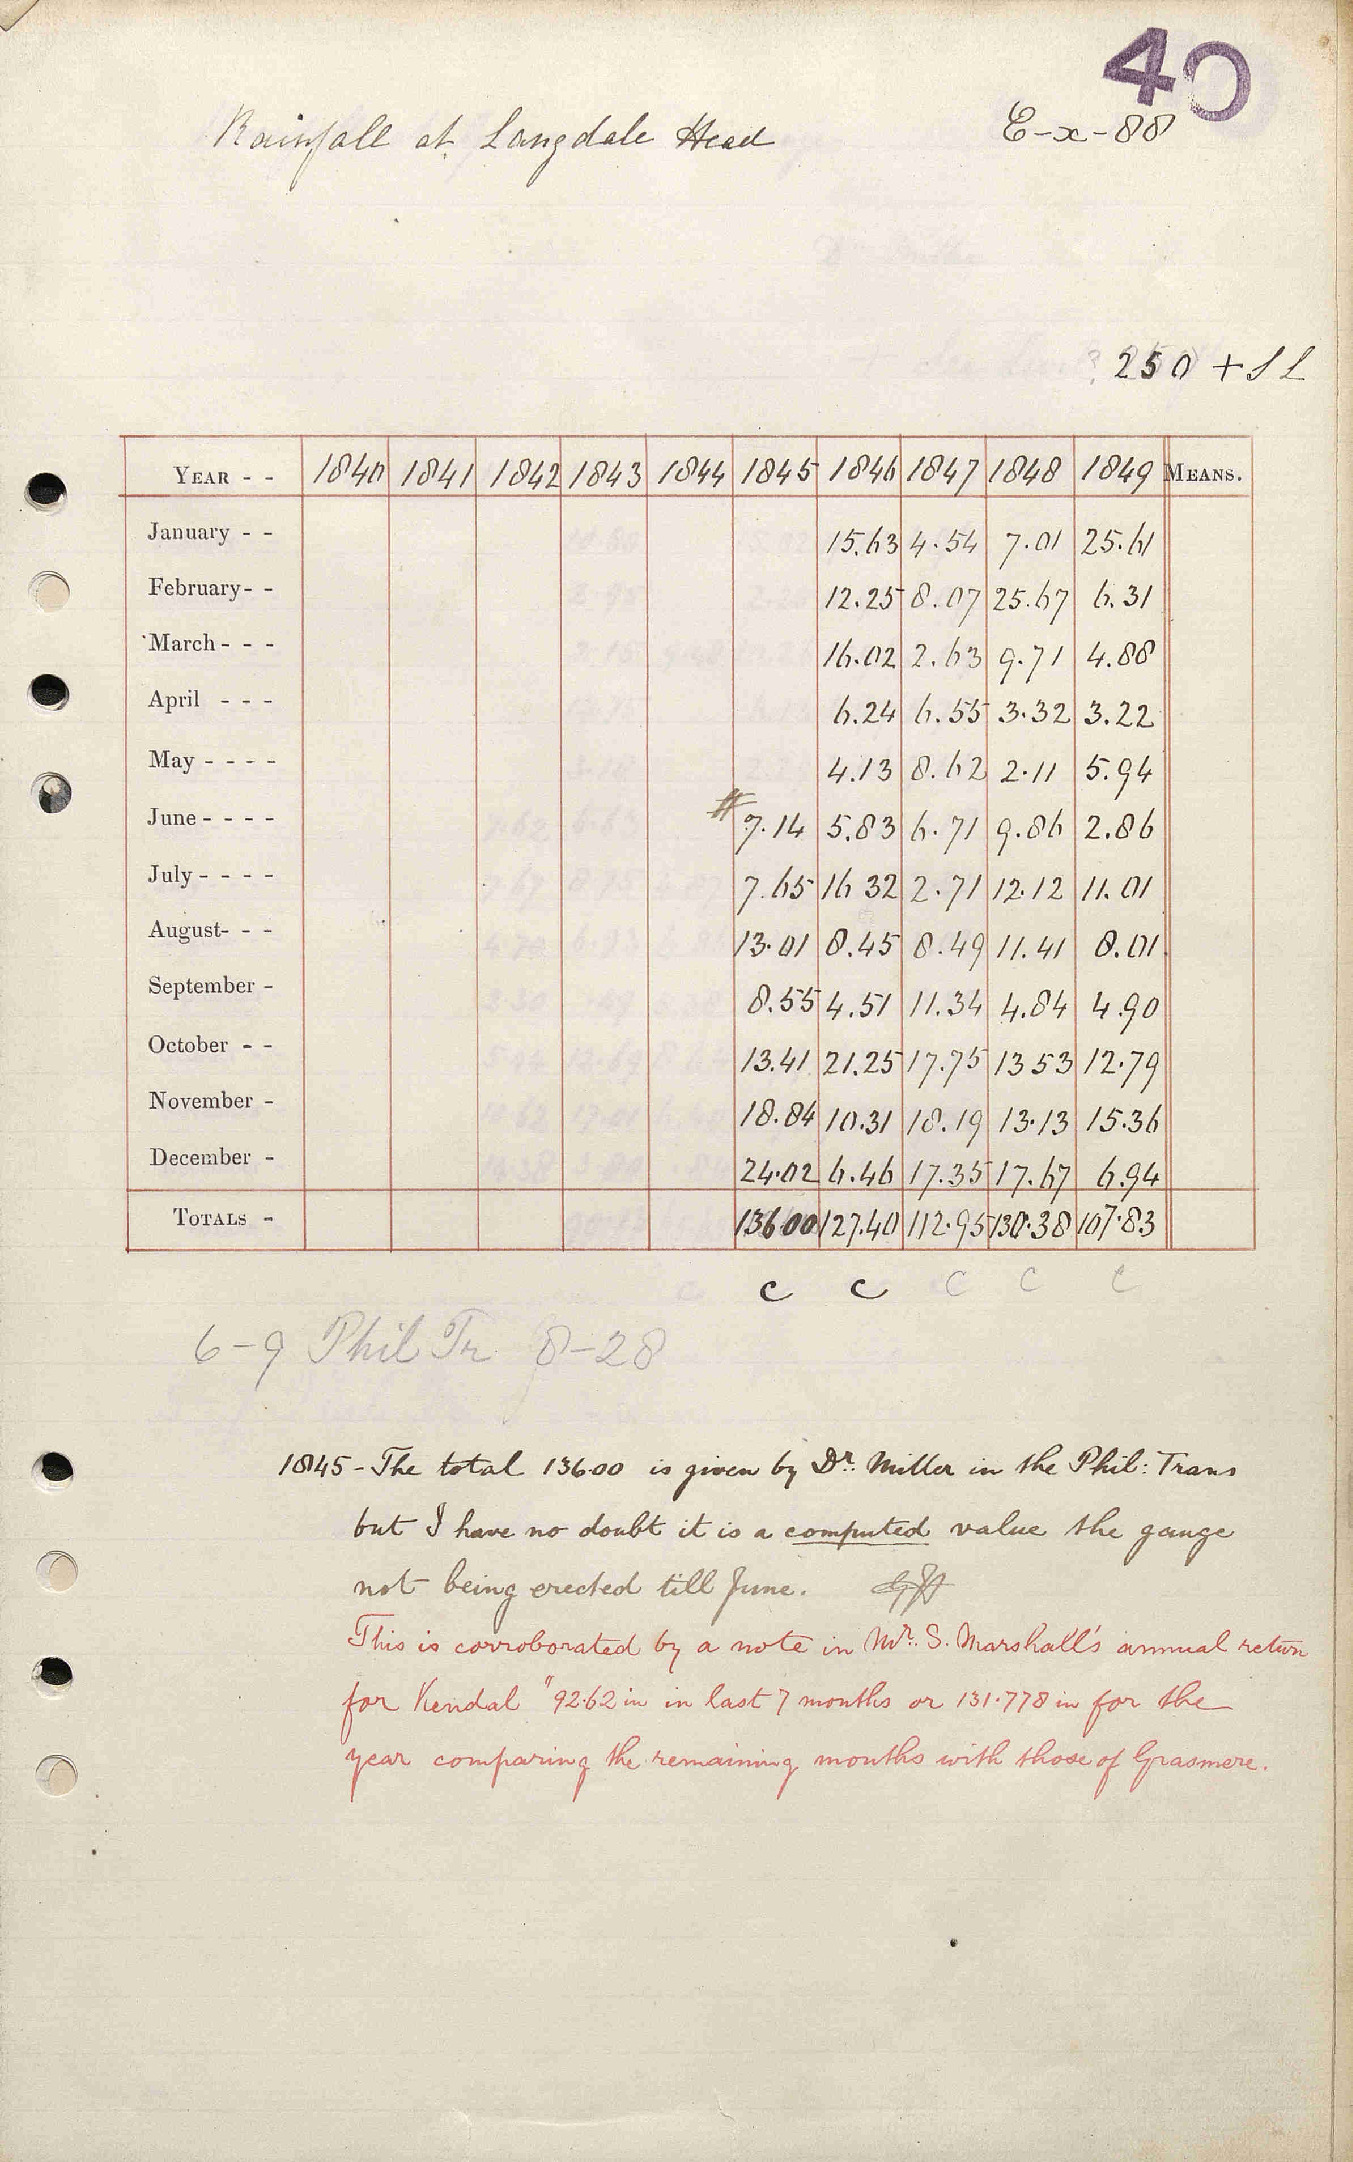 40
Rainfall at Langdale Head
E-x-88
? 250 + S L
YEAR - - 1840 1841 1842 1843 1844 1845 1846 1847 1848 1849 MEANS.
January - - 15.63 4.54 7.01 25.61
February - - 12.25 8.07 25.67 6.31
March - - - 16.02 2.63 9.71 4.88
April - - - 6.24 6.55 3.32 3.22
May - - - - 4.13 8.62 2.11 5.94
June - - - - # 7.14 5.83 6.71 9.86 2.86
July - - - - 7.65 16 32 2.71 12.12 11.01
August- - - 13.01 8.45 8.49 11.41 8.01
September - 8.55 4.51 11.34 4.84 4.90
October - - 13.41 21.25 17.75 13 53 12.79
November - 18.84 10.31 18.19 13.13 15.36
December - 24.02 6.46 17.35 17.67 6.94
TOTALS - 136.00 127.40 112.95 130.38 107.83
c c c c c
6-9 Phil Tr 8-28
1845 - The total 136.00 is given by Dr. Miller in the Phil: Trans
but I have no doubt it is a computed value the gauge
not being erected till June.
This is corroborated by a note in Mr. S. Marshall's annual return
for Kendal "92.62 in in last 7 months or 131.778 in for the
year comparing the remaining months with those of Grasmere.